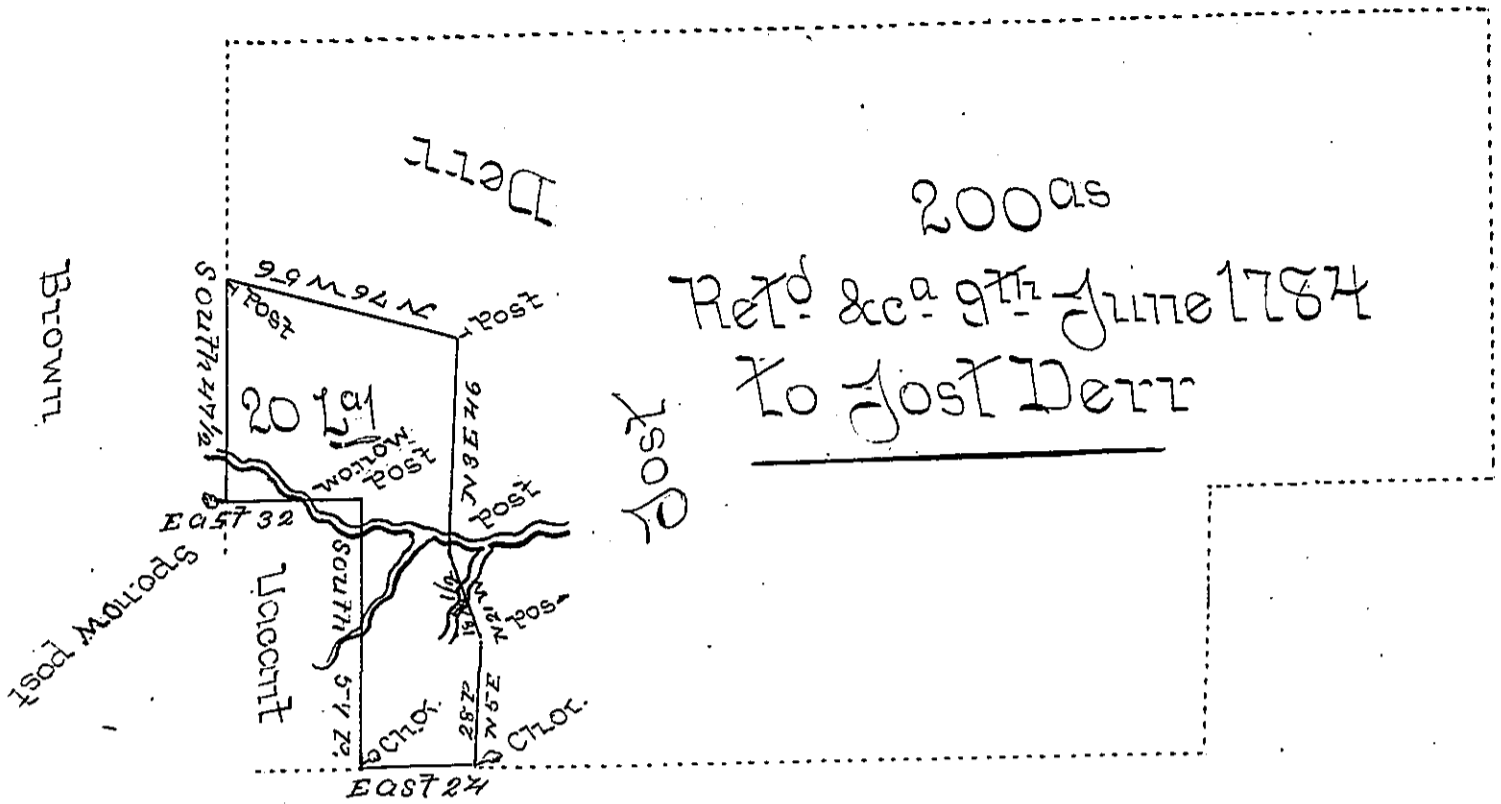 Derr
200as
Retd &ca 9th June 1784
to Jost Derr
Brown
South 47 1/2
N 76 W 56
Post
post
20 La1
worrow post
N 8 E 46
post
Jost
East 32
sporrow post
Vacant
South 57 P.
N 21 W
post
N 5 E
28 P
Chor.
Chor.
East 24